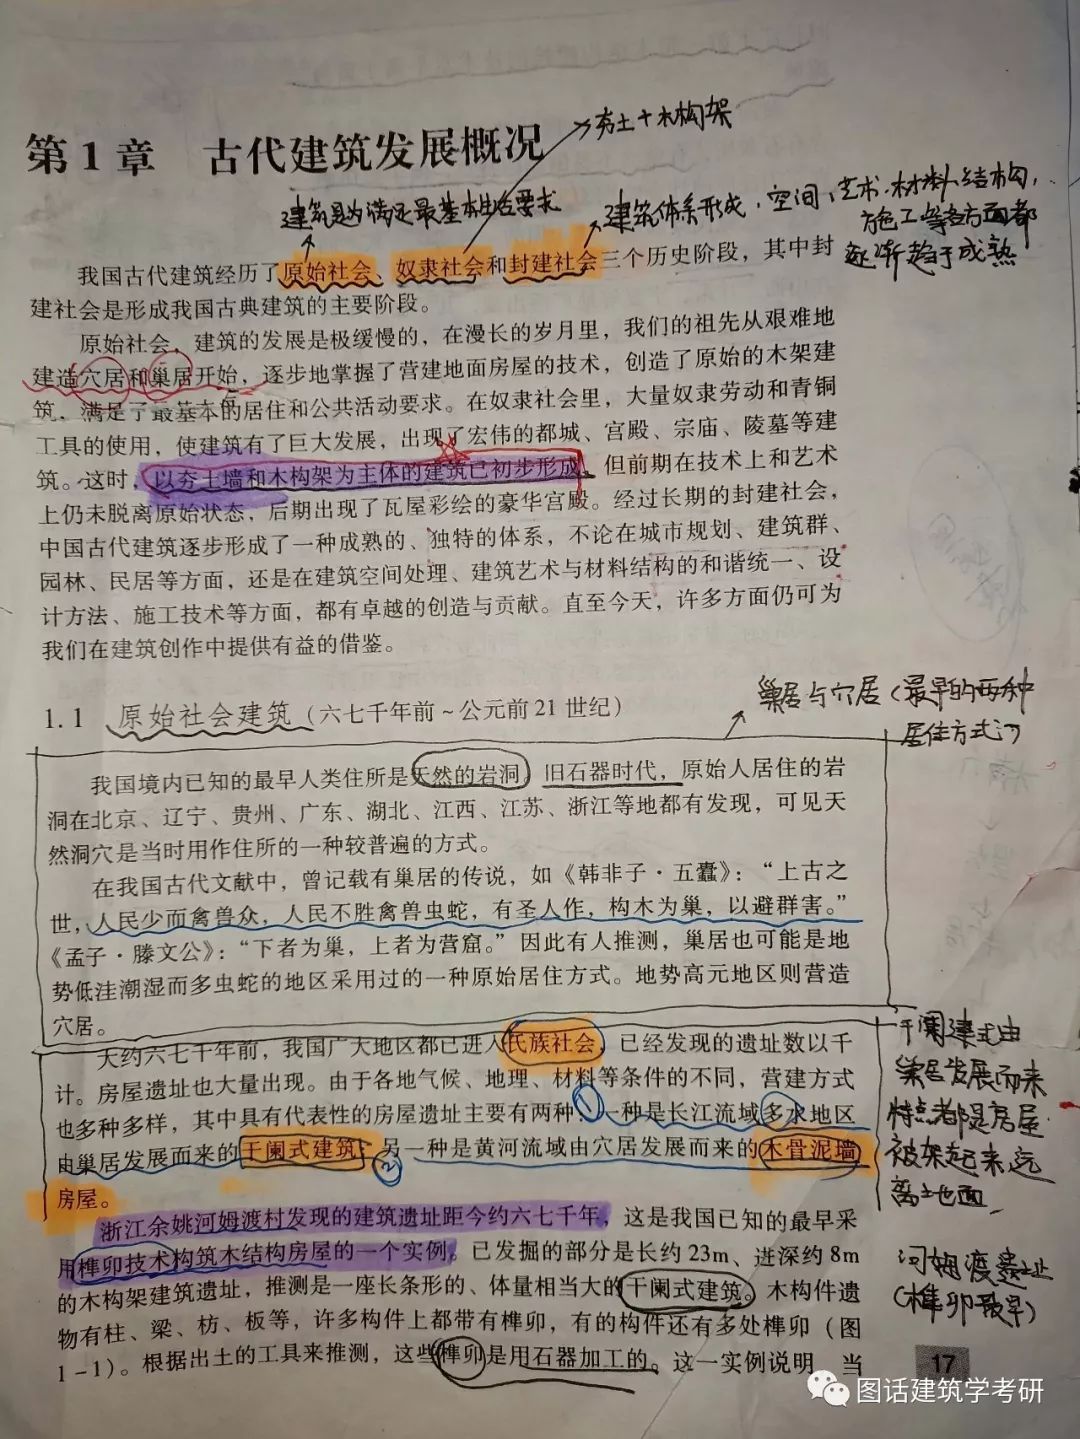 夯土+木构架
第1章 古代建筑发展概况
建筑是为满足最基本生活要求
建筑体系形成,空间,艺术.材料结构,
施工等各方面都
逐渐趋于成熟
我国古代建筑经历了原始社会、奴隶社会和封建社会三个历史阶段，其中封
建社会是形成我国古典建筑的主要阶段。
原始社会，建筑的发展是极缓慢的，在漫长的岁月里，我们的祖先从艰难地
建造穴居和巢居开始，逐步地掌握了营建地面房屋的技术，创造了原始的木架建
筑，满足了最基本的居住和公共活动要求。在奴隶社会里，大量奴隶劳动和青铜
工具的使用，使建筑有了巨大发展，出现了宏伟的都城、宫殿、宗庙、陵墓等建
筑。这时，以夯土墙和木构架为主体的建筑已初步形成，但前期在技术上和艺术
上仍未脱离原始状态，后期出现了瓦屋彩绘的豪华宫殿。经过长期的封建社会，
中国古代建筑逐步形成了一种成熟的、独特的体系，不论在城市规划、建筑群、
园林、民居等方面，还是在建筑空间处理、建筑艺术与材料结构的和谐统一、设
计方法、施工技术等方面，都有卓越的创造与贡献。直至今天，许多方面仍可为
我们在建筑创作中提供有益的借鉴。
巢居与穴居(最早的两种
居住方式)
1.1 原始社会建筑（六七千年前~公元前21世纪）
我国境内已知的最早人类住所是天然的岩洞。旧石器时代，原始人居住的岩
洞在北京、辽宁、贵州、广东、湖北、江西、江苏、浙江等地都有发现，可见天
然洞穴是当时用作住所的一种较普遍的方式。
在我国古代文献中，曾记载有巢居的传说，如《韩非子·五蠹》：“上古之
世，人民少而禽兽众，人民不胜禽兽虫蛇，有圣人作，构木为巢，以避群害。”
《孟子·滕文公》：“下者为巢，上者为营窟。”因此有人推测，巢居也可能是地
势低洼潮湿而多虫蛇的地区采用过的一种原始居住方式。地势高亢地区则营造
穴居。
大约六七千年前，我国广大地区都已进入氏族社会，已经发现的遗址数以千
计。房屋遗址也大量出现。由于各地气候、地理、材料等条件的不同，营建方式
也多种多样，其中具有代表性的房屋遗址主要有两种：①一种是长江流域多水地区
由巢居发展而来的干阑式建筑；②另一种是黄河流域由穴居发展而来的木骨泥墙
房屋。
干阑建式由
巢居发展而来
特点都是房屋
被架起来远
离土地面
浙江余姚河姆渡村发现的建筑遗址距今约六七千年，这是我国已知的最早采
用榫卯技术构筑木结构房屋的一个实例。已发掘的部分是长约23m、进深约8m
的木构架建筑遗址，推测是一座长条形的、体量相当大的干阑式建筑。木构件遗
物有柱、梁、枋、板等，许多构件上都带有榫卯，有的构件还有多处榫卯（图
1-1）。根据出土的工具来推测，这些榫卯是用石器加工的。这一实例说明，当
河姆渡遗址
(榫卯最早)
17
图话建筑学考研